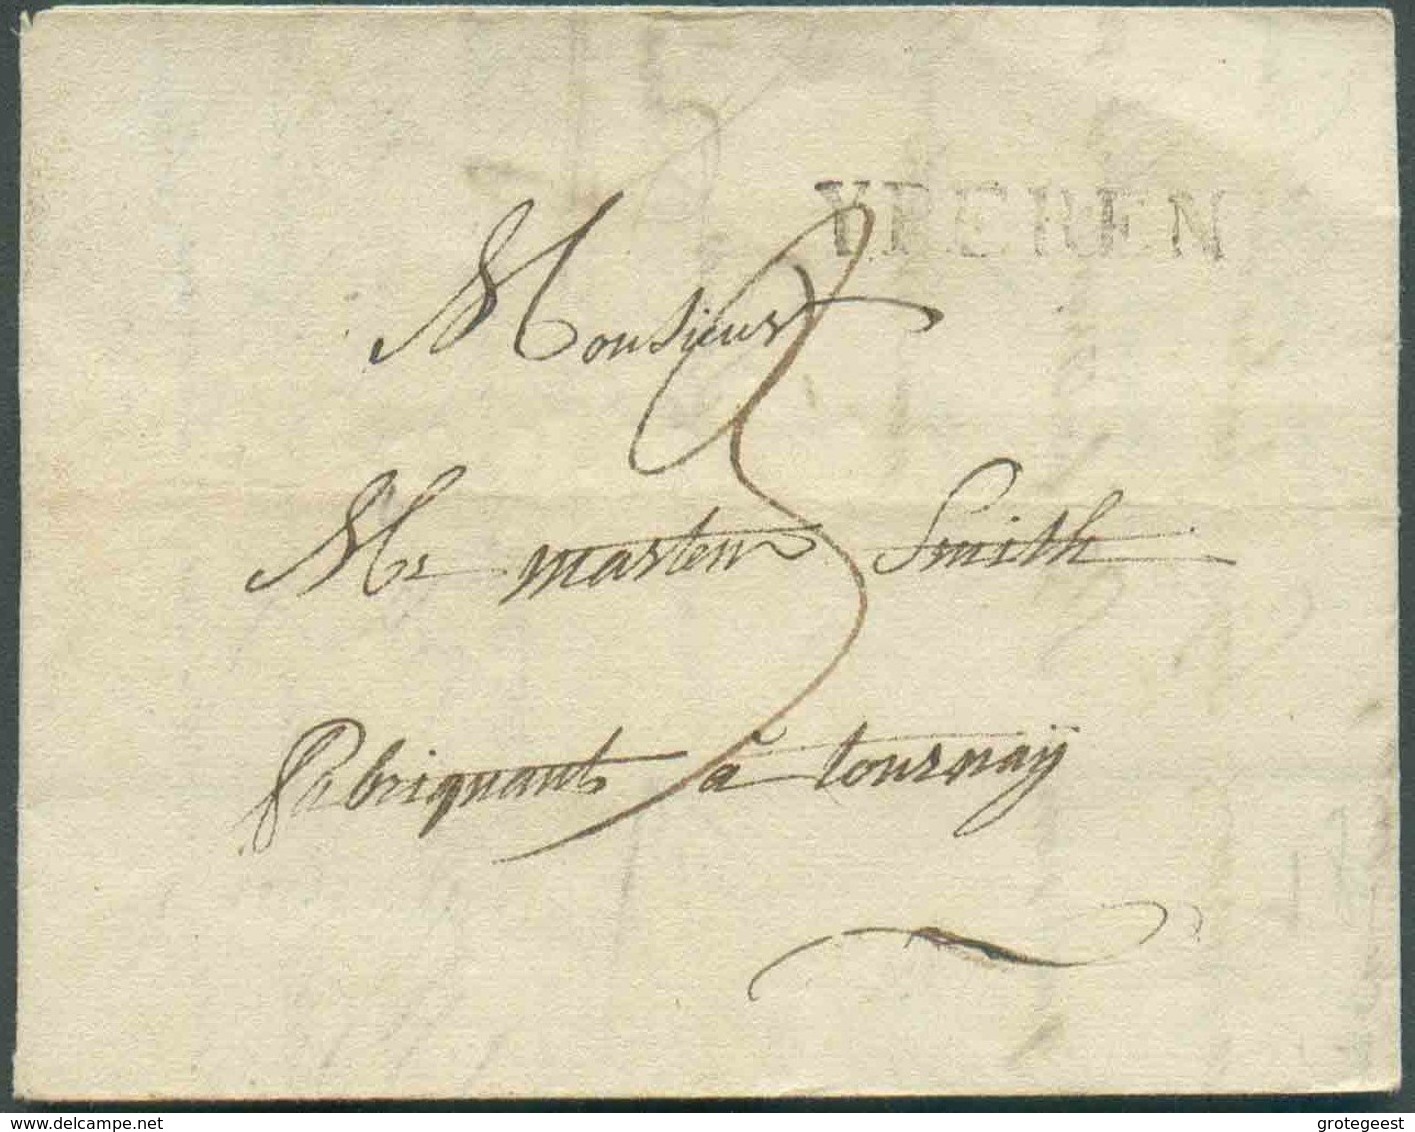 YPEREN
3
Monsieur
Mr marten Smith
fabriquant à tournaÿ
delcampe.net
grotegeest